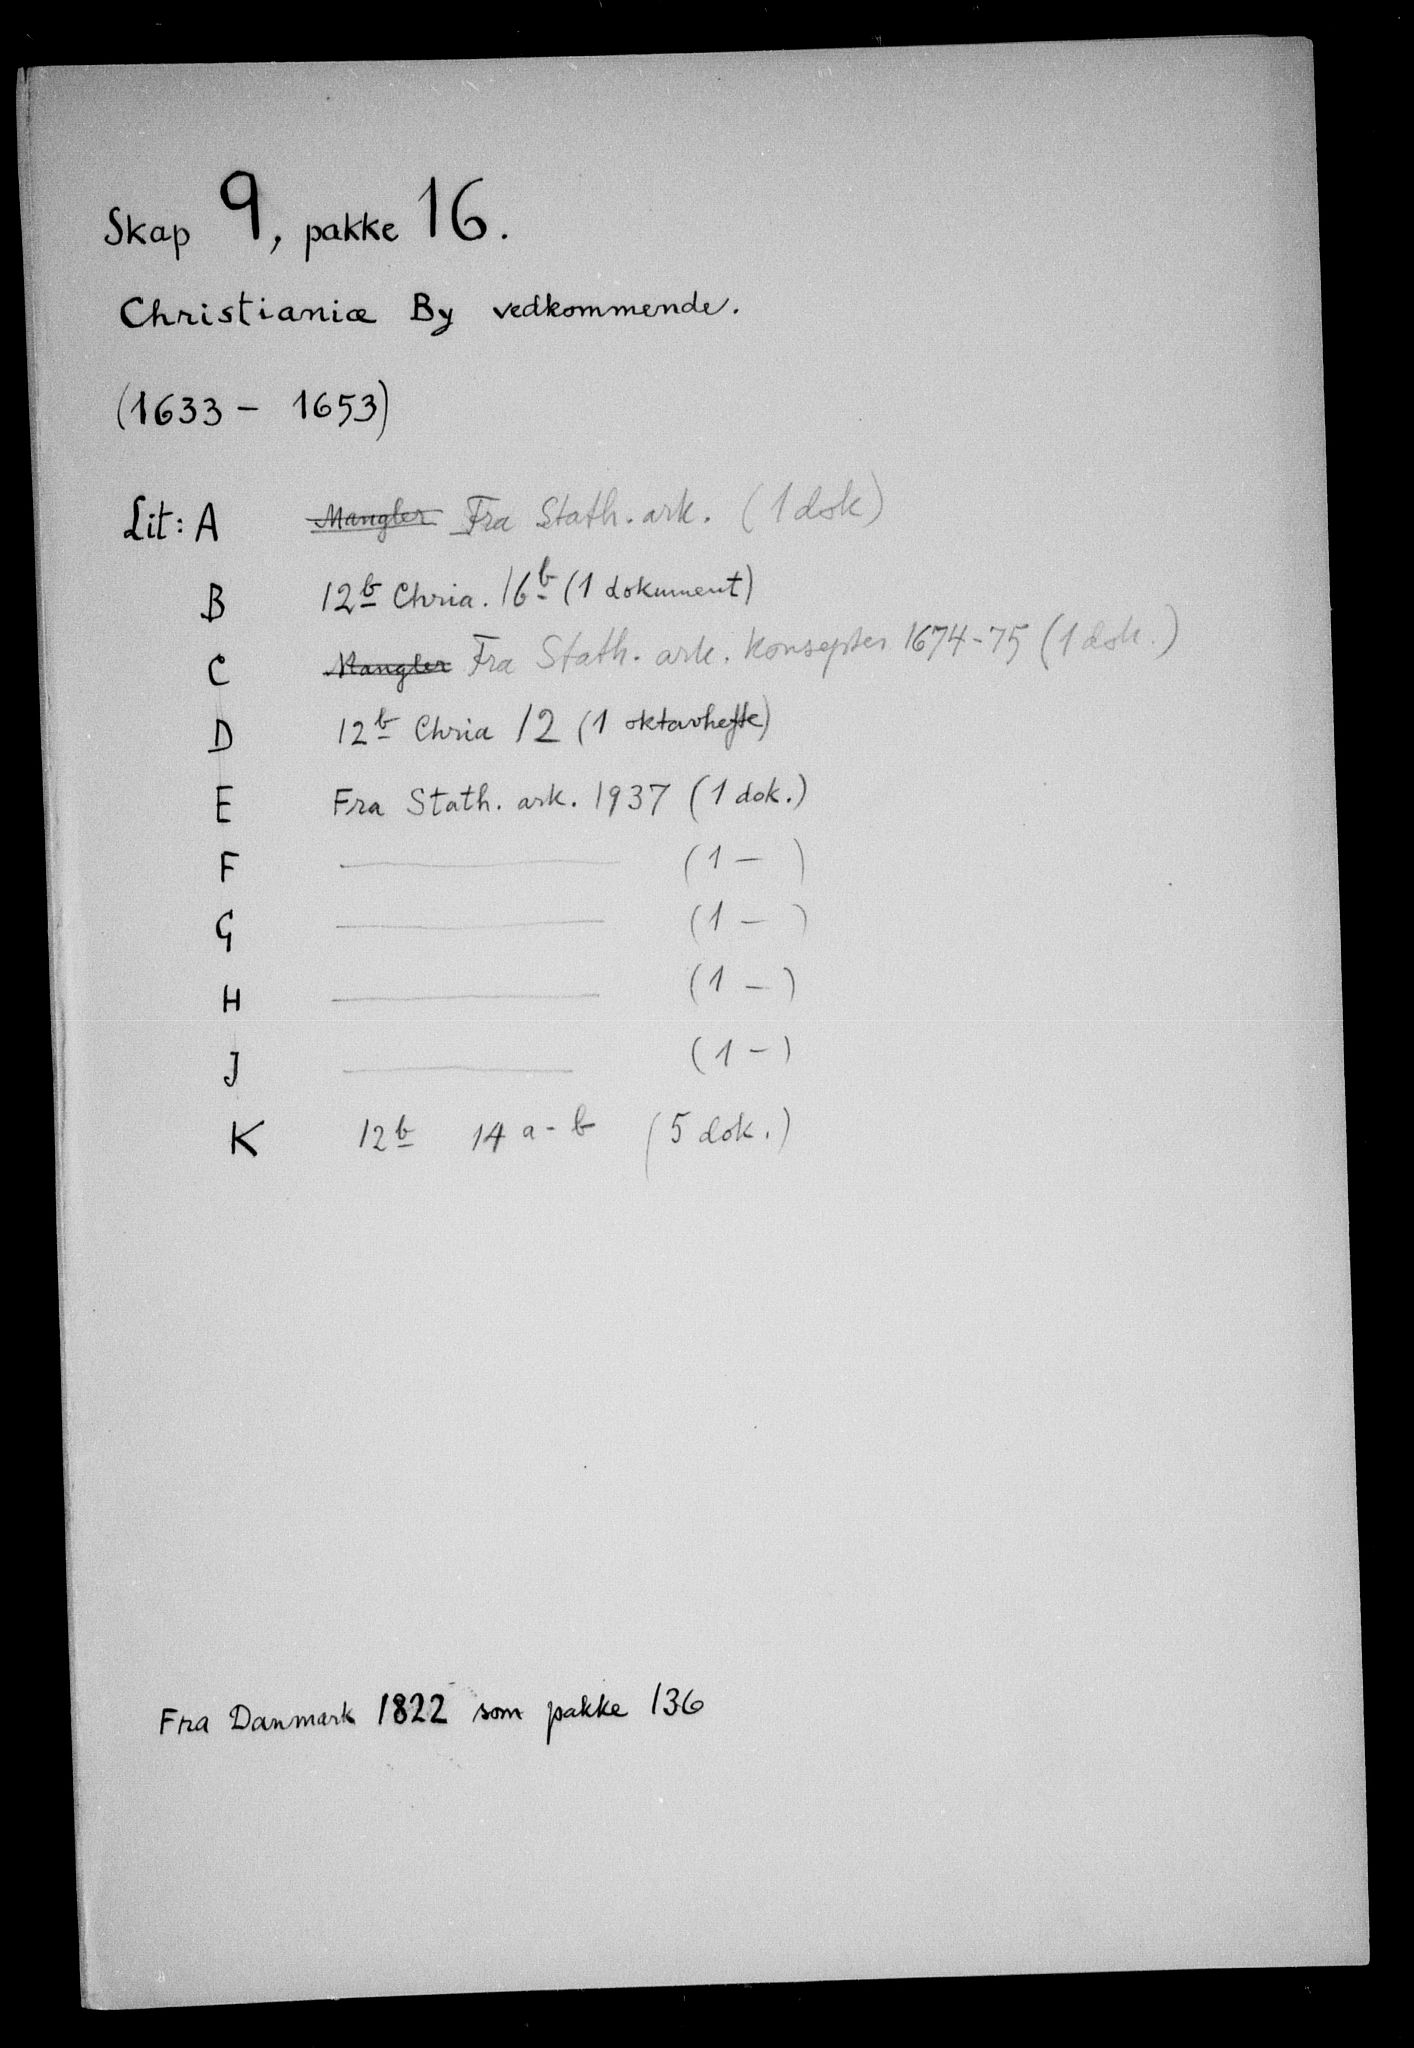 Skap 9, pakke 16.
Christianiæ By vedkommende.
(1633 - 1653)
Lit: A Mangler Fra Stath. ark. (1 dok)
B 12b Chria. 16b (1 dokument)
C Mangler Fra Stath. ark. konsepter 1674-75 (1 dok.)
D 12b Chria 12 (1 oktavhefte)
E Fra Stath. ark. 1937 (1 dok.)
F ———— (1 — )
G ———— (1 — )
H ———— (1 — )
J ———— (1 — )
K 12b 14 a-b (5 dok.)
Fra Danmark 1822 som pakke 136